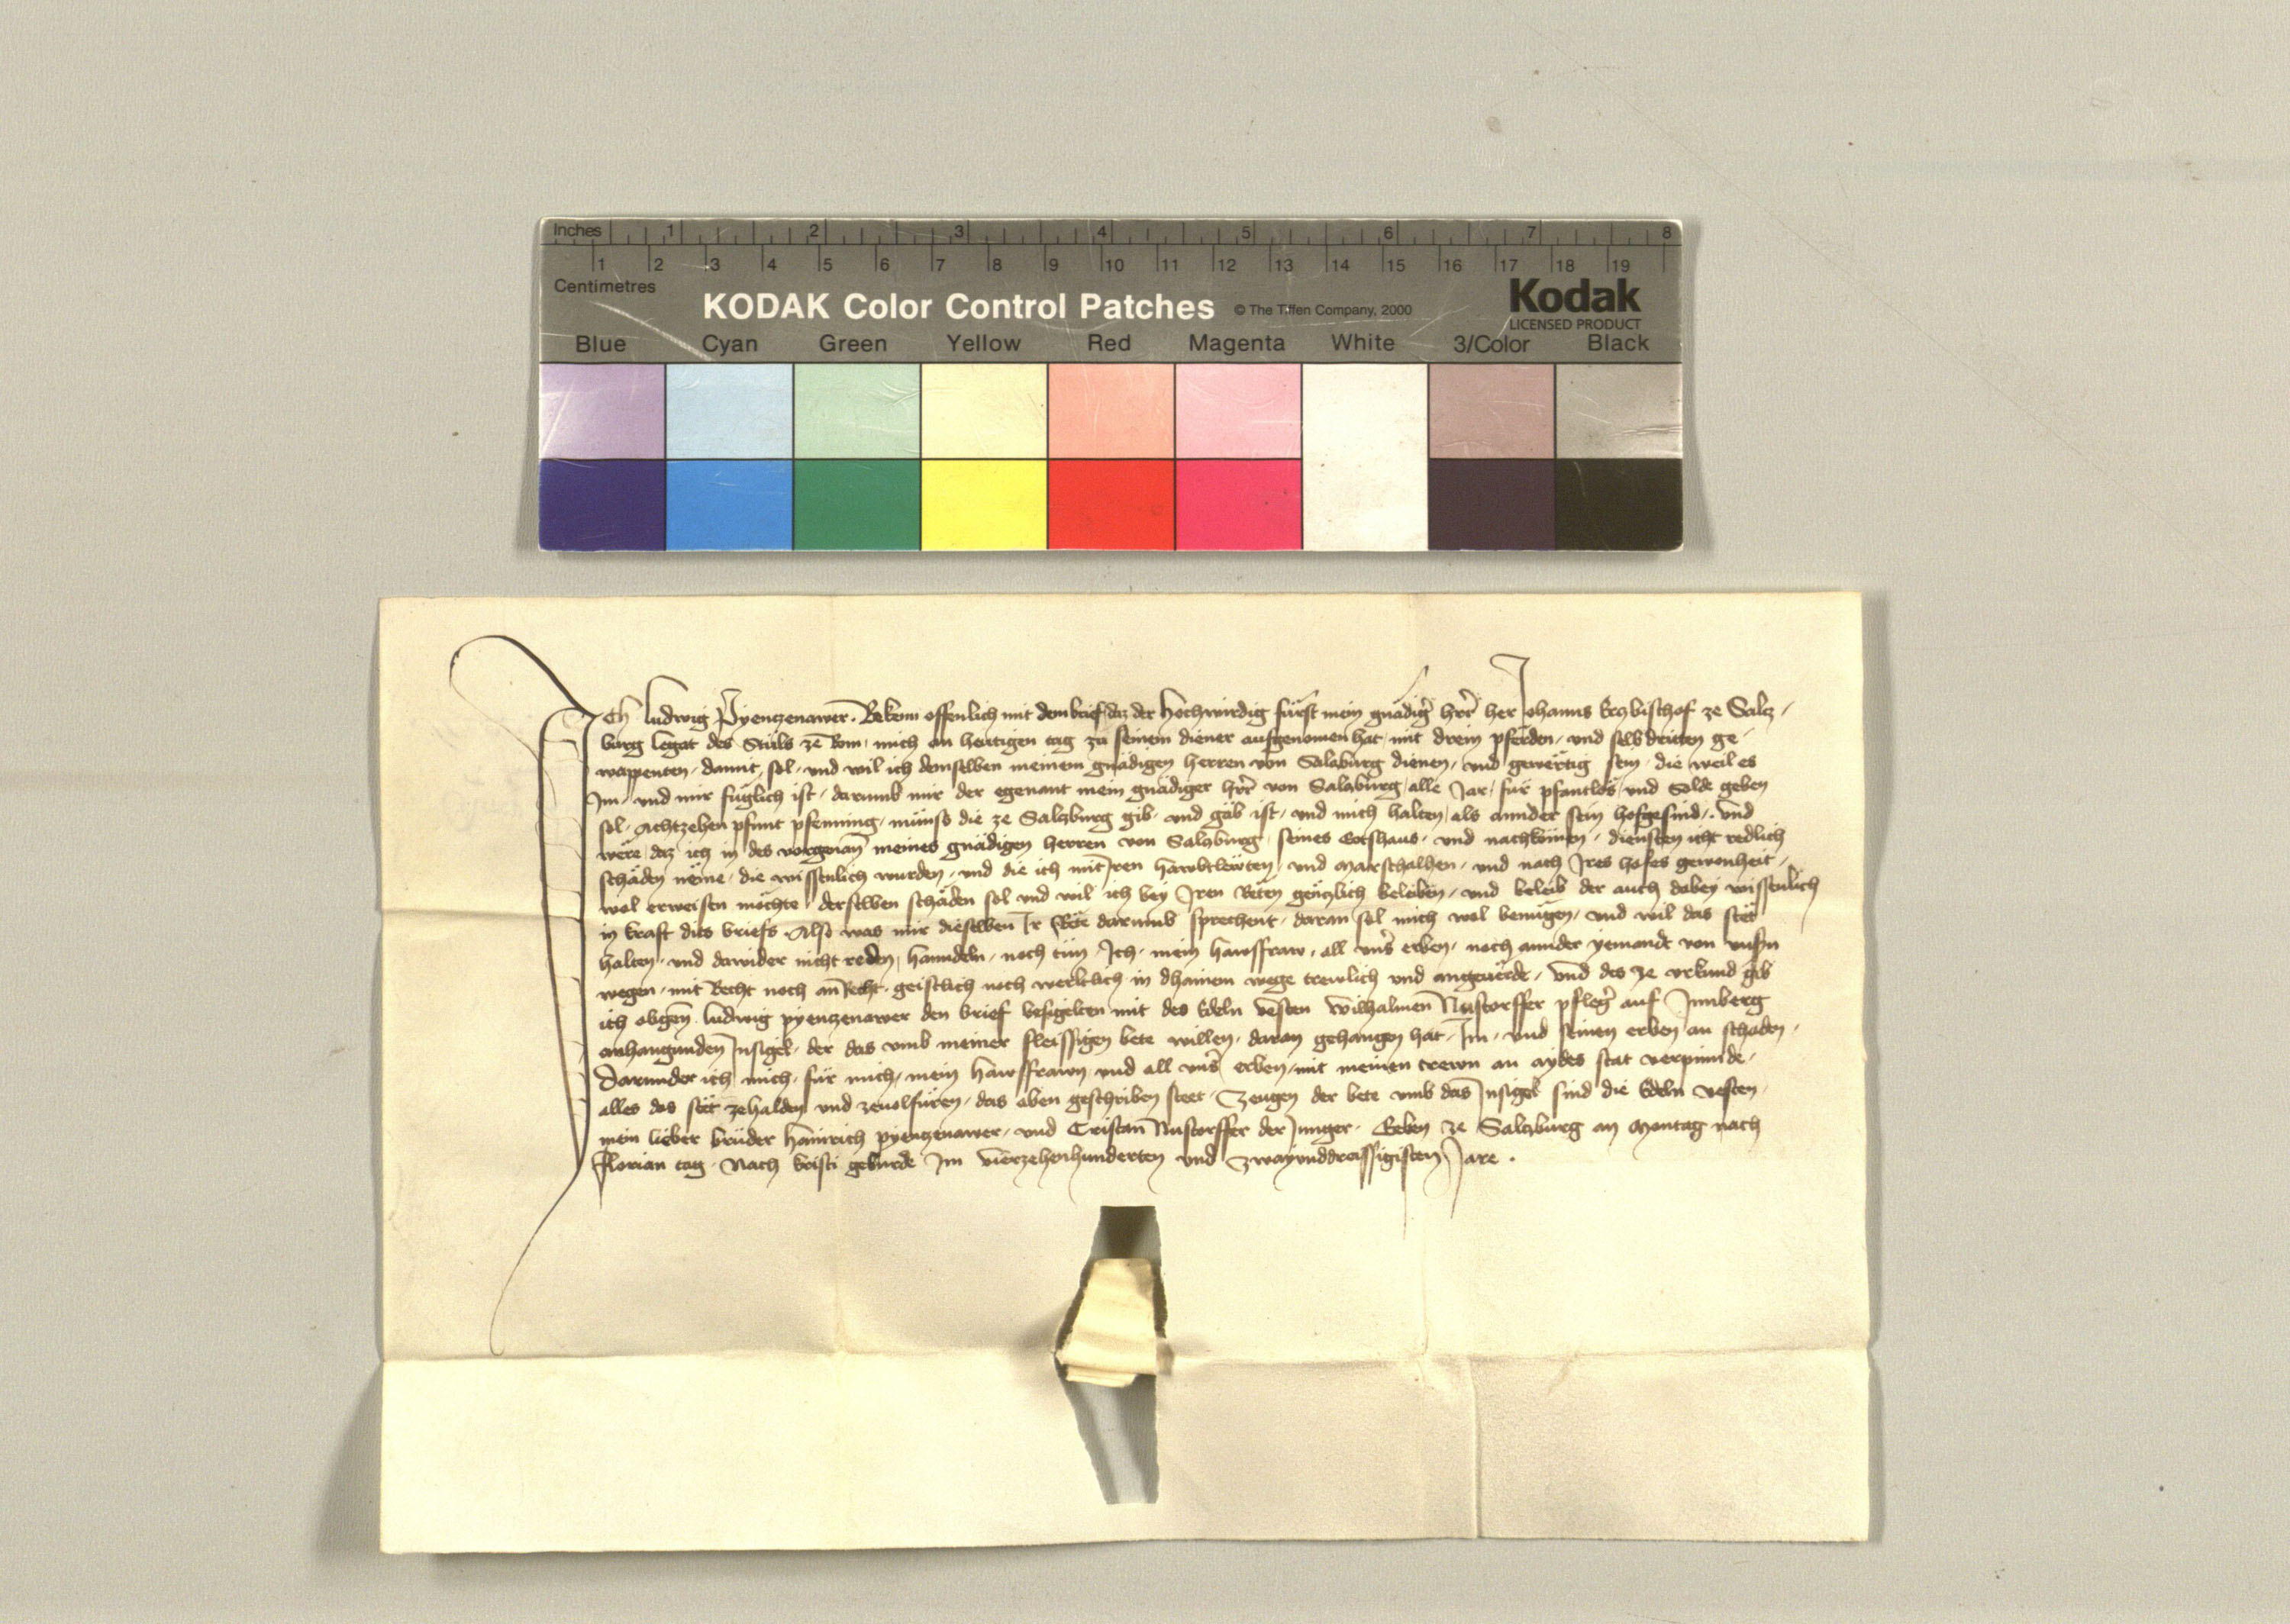 Inches 1 2 3 4 5 6 7 8
1 2 3 4 5 6 7 8 9 10 11 12 13 14 15 16 17 18 19
Centimetres
KODAK Color Control Patches © The Tiffen Company, 2000 Kodak
LICENSED PRODUCT
Blue Cyan Green Yellow Red Magenta White 3/Color Black
Ich Ludwig Pyenzenawer. Bekenn offenlich mit dem brief daz der Hochwirdig fürst mein gnädiger herr her Johanns Erzbischof ze Salcz-
burg legat des Stüls ze Rom, mich an hewtigen tag zu seinem diener aufgenomen hat, mit drein pferden, und selbdritten ge-
wappenten, damit sol, und wil ich demselben meinem gnädigen herren von Salzburg dienen, und gewertig sein, die weil es
Im, und mir füglich ist, darumb mir der egenant mein gnädiger herr von Salzburg, alle Jar, für pfantlos, und Solde geben
sol, Achtzehen pfunt pfenning, münss die ze Salzburg gib, und gäb ist, und mich halten, als annder sein hofgesind, und
were, daz ich in des vorgenan meines gnädigen herren von Salzburg, seines Gotshaus, und nachkomen, diensten icht redlich
schäden näme, die wissenlich wurden, und die ich mit Iren hawbtlewten, und Marschalhen, und nach Ires hofes gewonheit,
wol erweisen möchte, derselben schäden sol und wil ich bey Iren Reten genzlich beleiben, und beleib der auch dabey wissenlich
in kraft dits briefs. Also was mir dieselben Ir Rete darumb sprechent, daran sol mich wol benügen, und wil das stet
halten, und dawider nicht reden, hanndeln, noch tün, Ich, mein hawsfraw, all unser erben, noch annder yemandt von unsern
wegen, mit Recht noch an Recht, geistlich noch werltlich in dhainem wege trewlich und angeuerde, Und des ze urkund gib
ich obgen. Ludwig pyenzenawer den brief besigelten mit des Edeln vesten Wilhalmen Nustorffer pfleger auf Ynnberg
anhangunden Insigel, der das umb meiner fleissigen bete willen, daran gehangen hat, Im, und seinen erben an schaden,
Darunder ich mich, für mich, mein hawsfrawn und all unser erben, mit meinen trewn an aydes stat verpinnde,
alles das stet zehalden und zeuolfüren, das oben geschriben steet. Zeugen der bete umb das Insigel sind die Edeln vesten,
mein lieber brüder hainrich pyenzenawer, und Cristan Nustorffer der Junger. Geben ze Salzburg an Montag nach
florian tag. Nach kristi geburde Im vierzehenhunderten und Zwayunddreissigisten Jare.